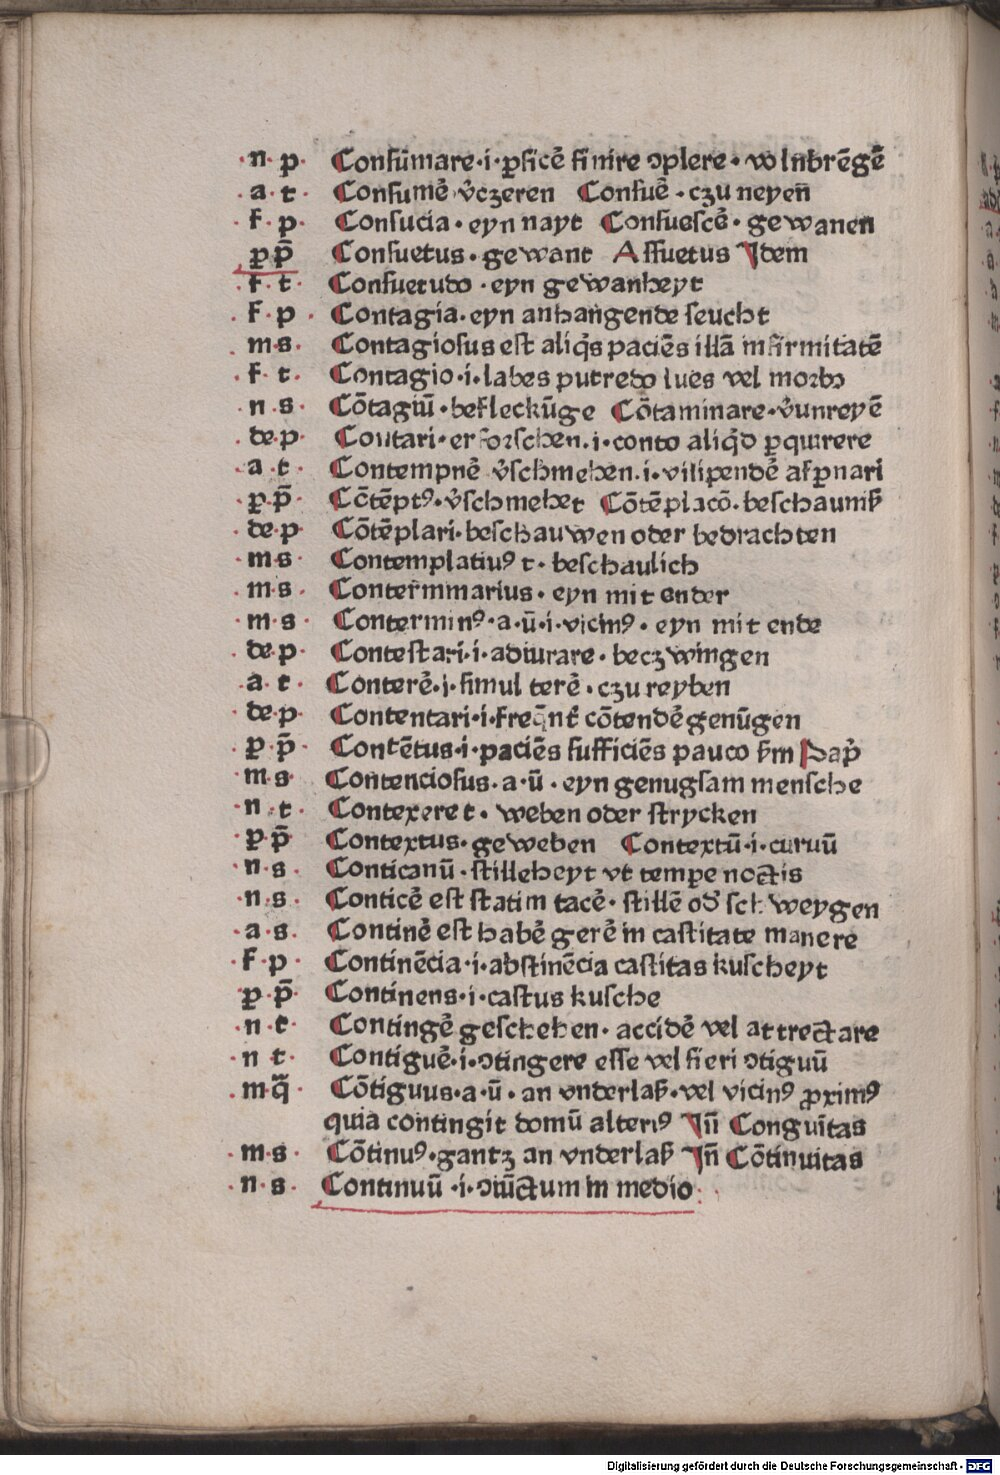 ·n·p· Consūmare·i·ꝑficē finire ɔplere· volnbrēgē
·a·t· Consumē v̄czeren Consuē·czu neyen̄
·f·p· Consucia·eyn nayt Consuescē·gewanen
ꝑp̄ Consuetus·gewant Assuetus Idem
·f·t· Consuetudo·eyn gewanheyt
·f·p· Contagia·eyn anhangende seucht
·m·s· Contagiosus est aliq̄s paciēs illā infirmitatē
·f·t· Contagio·i·labes putredo lues vel morbɔ
·n·s· Cōtagiū·befleckūge Cōtaminare·v̄unreyē
·de·p· Contari·erforschen·i·conto aliq̄d ꝑquirere
·a·t· Contempnē v̄schmehen·i·vilipendē aspnari
·ꝑ·p̄· Cōtēptꝰ·v̄schmehet Cōtēplacō·beschauniß
·de·p· Cōtēplari·beschauwen oder bedrachten
·m·s· Contemplatiuꝰ t·beschaulich
·m·s· Conterminarius·eyn mit ender
·m·s· Conterminꝰ·a·ū·i·vicinꝰ·eyn mit ende
·de·p· Contestari·i·adiurare·beczwingen
·a·t· Conterē·i·simul terē·czu reyben
·de·p· Contentari·i·freq̄nt̄ cōtendē genūgen
·ꝑ·p̄· Contētus·i·paciēs sufficiēs pauco s̄m Pap̄
·m·s· Contenciosus·a·ū·eyn genugsam mensche
·n·t· Contexere t·weben oder strycken
·ꝑ·p̄ Contextus·geweben Contextū·i·curuū
·n·s· Conticanū·stilleheyt vt tempe noctis
·n·s· Conticē est statim tacē·stillē od̄ schweygen
·a·s· Continē est habē gerē in castitate manere
·f·p· Continēcia·i·abstinēcia castitas kuscheyt
·ꝑ·p̄· Continens·i·castus kusche
·n·t· Contingē geschehen·accidē vel attrectare
·n t· Contiguē·i·ɔtingere esse vel fieri ɔtiguū
·m·q̄· Cōtiguus·a·ū·an vnderlaß·vel vicinꝰ ꝓximꝰ
quia contingit domū alteriꝰ In̄ Conguītas
·m·s· Cōtinuꝰ·gantz an vnderlaß In̄ Cōtinuitas
·n·s· Continuū·i·ɔiūctum in medio
Digitalisierung gefördert durch die Deutsche Forschungsgemeinschaft - DFG